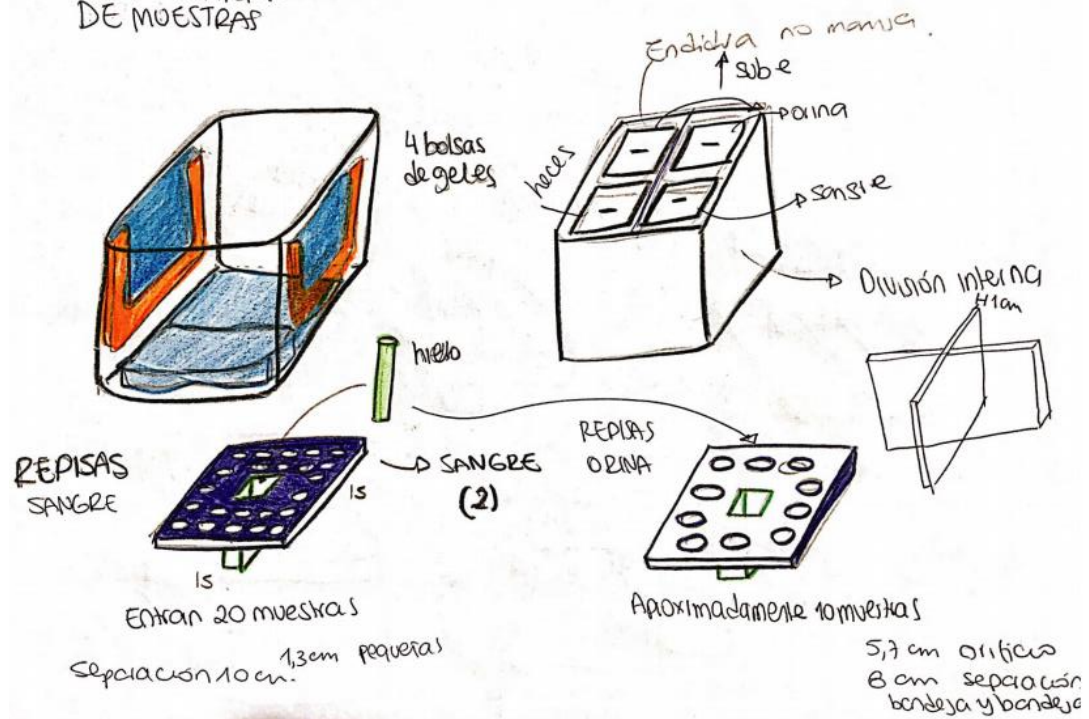 DE MUESTRAS
Endidura no manija.
sube
orina
4 bolsas
de geles
heces
sangre
División interna
H1cm
hielo
REPISAS
SANGRE
SANGRE
(2)
15
15
REPISAS
ORINA
Entran 20 muestras
Aproximadamente 10 muestras
Separación 10 cm.
1,3cm pequeñas
5,7 cm orificio
8 cm separación
bandeja y bandeja